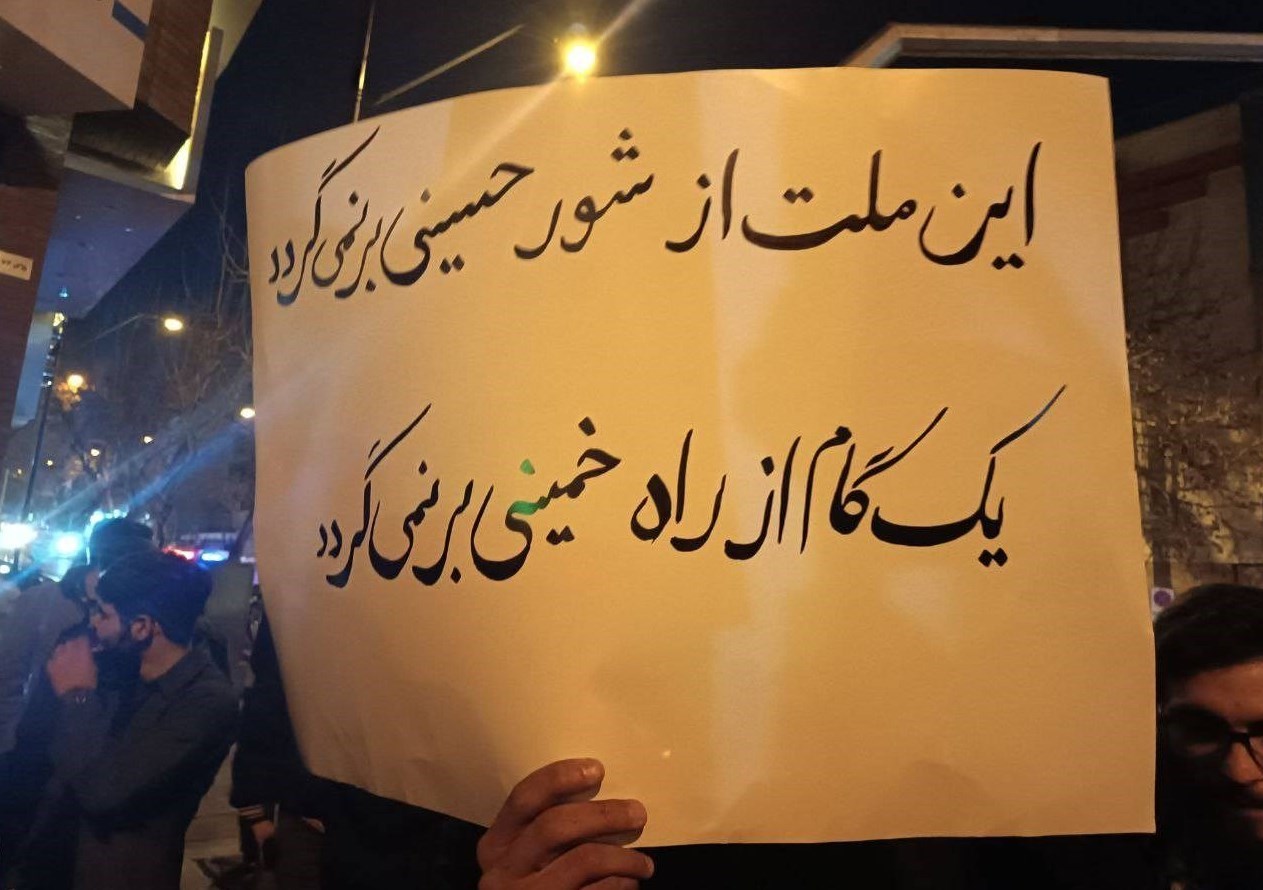 این ملت از شور حسینی برنمی‌گردد
یک گام از راه خمینی برنمی‌گردد